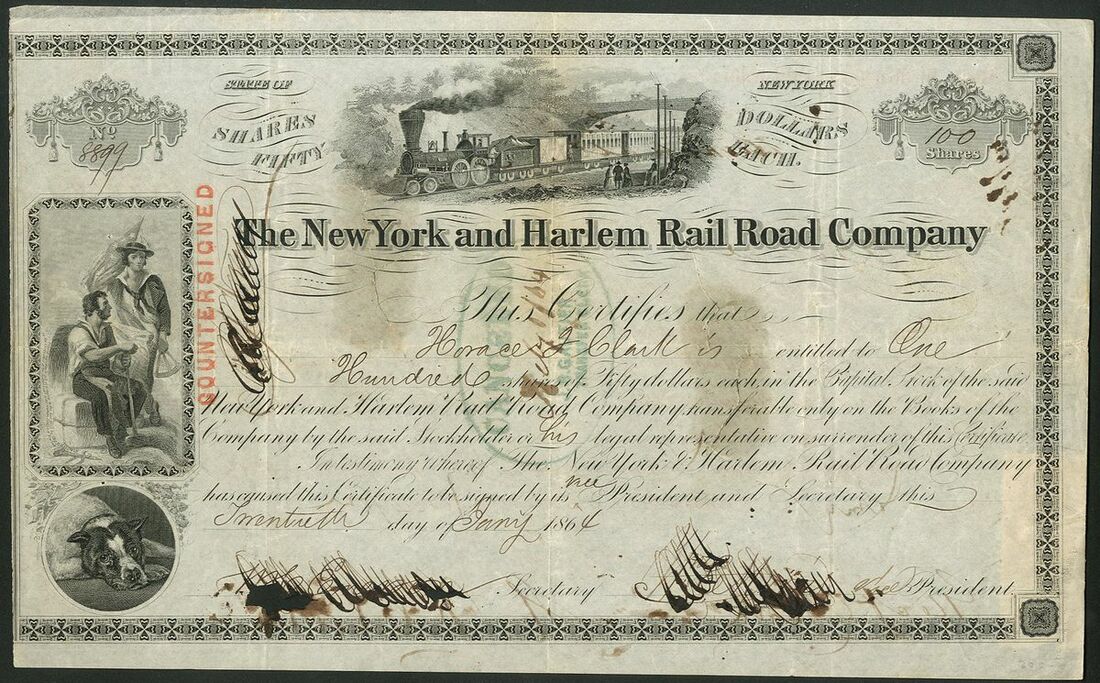 STATE OF
NEW YORK
No
8899
SHARES
FIFTY
DOLLARS
EACH.
100
Shares
COUNTERSIGNED
The New York and Harlem Rail Road Company
This Certifies that
Horace F Clark is entitled to One
Hundred shares of Fifty dollars each in the Capital Stock of the said
New York and Harlem Rail Road Company, transferable only on the Books of the
Company by the said Stockholder or his legal representative on surrender of this Certificate.
In testimony whereof The New York & Harlem Rail Road Company
vice
has caused this Certificate to be signed by its President and Secretary this
Twentieth day of Jany 1864
Secretary
vice President.
CANCELLED